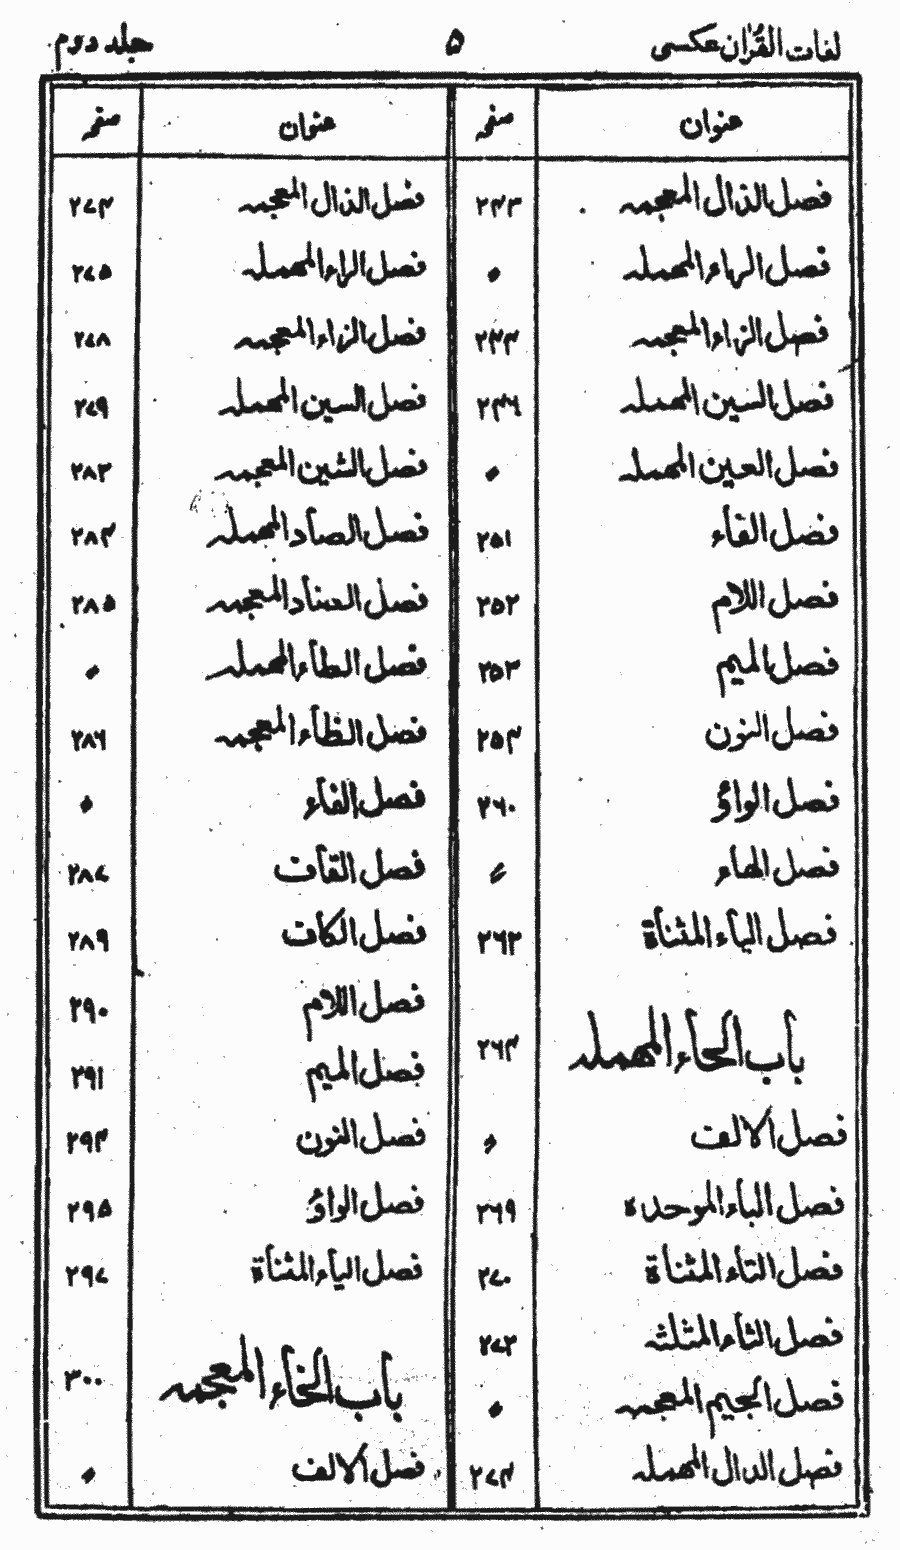 لغات القرآن عکسی ۵ جلد دوم
عنوان صفحہ عنوان صفحہ
فصل الذال المعجمہ ۲۴۳
فصل الراء المهملہ ″
فصل الزاء المعجمہ ۲۴۴
فصل السین المهملہ ۲۴۶
فصل العین المهملہ ″
فصل الفاء ۲۵۱
فصل اللام ۲۵۲
فصل المیم ۲۵۳
فصل النون ۲۵۴
فصل الواؤ ۲۶۰
فصل الهاء ″
فصل الیاء المثناة ۲۶۳
باب الحاء المهملہ ۲۶۴
فصل الالف ″
فصل الباء الموحدة ۲۶۹
فصل التاء المثناة ۲۷۰
فصل الثاء المثلثہ ۲۷۳
فصل الجیم المعجمہ ″
فصل الدال المهملہ ۲۷۴
فصل الذال المعجمہ ۲۷۴
فصل الراء المهملہ ۲۷۵
فصل الزاء المعجمہ ۲۷۸
فصل السین المهملہ ۲۷۹
فصل الشین المعجمہ ۲۸۳
فصل الصاد المهملہ ۲۸۴
فصل الضاد المعجمہ ۲۸۵
فصل الطاء المهملہ ″
فصل الظاء المعجمہ ۲۸۶
فصل الفاء ″
فصل القاف ۲۸۷
فصل الکاف ۲۸۹
فصل اللام ۲۹۰
فصل المیم ۲۹۱
فصل النون ۲۹۴
فصل الواؤ ۲۹۵
فصل الیاء المثناة ۲۹۷
باب الخاء المعجمہ ۳۰۰
فصل الالف ″